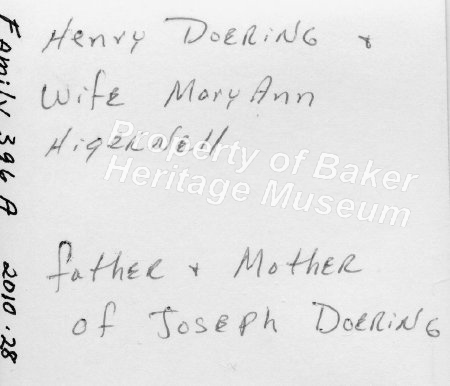 Henry DOERiNG &
WifE Mary Ann
HigERNEll
father & MotHER
of JosEPh DOERiNG
Family 396 A 2010.28
Property of Baker
Heritage Museum